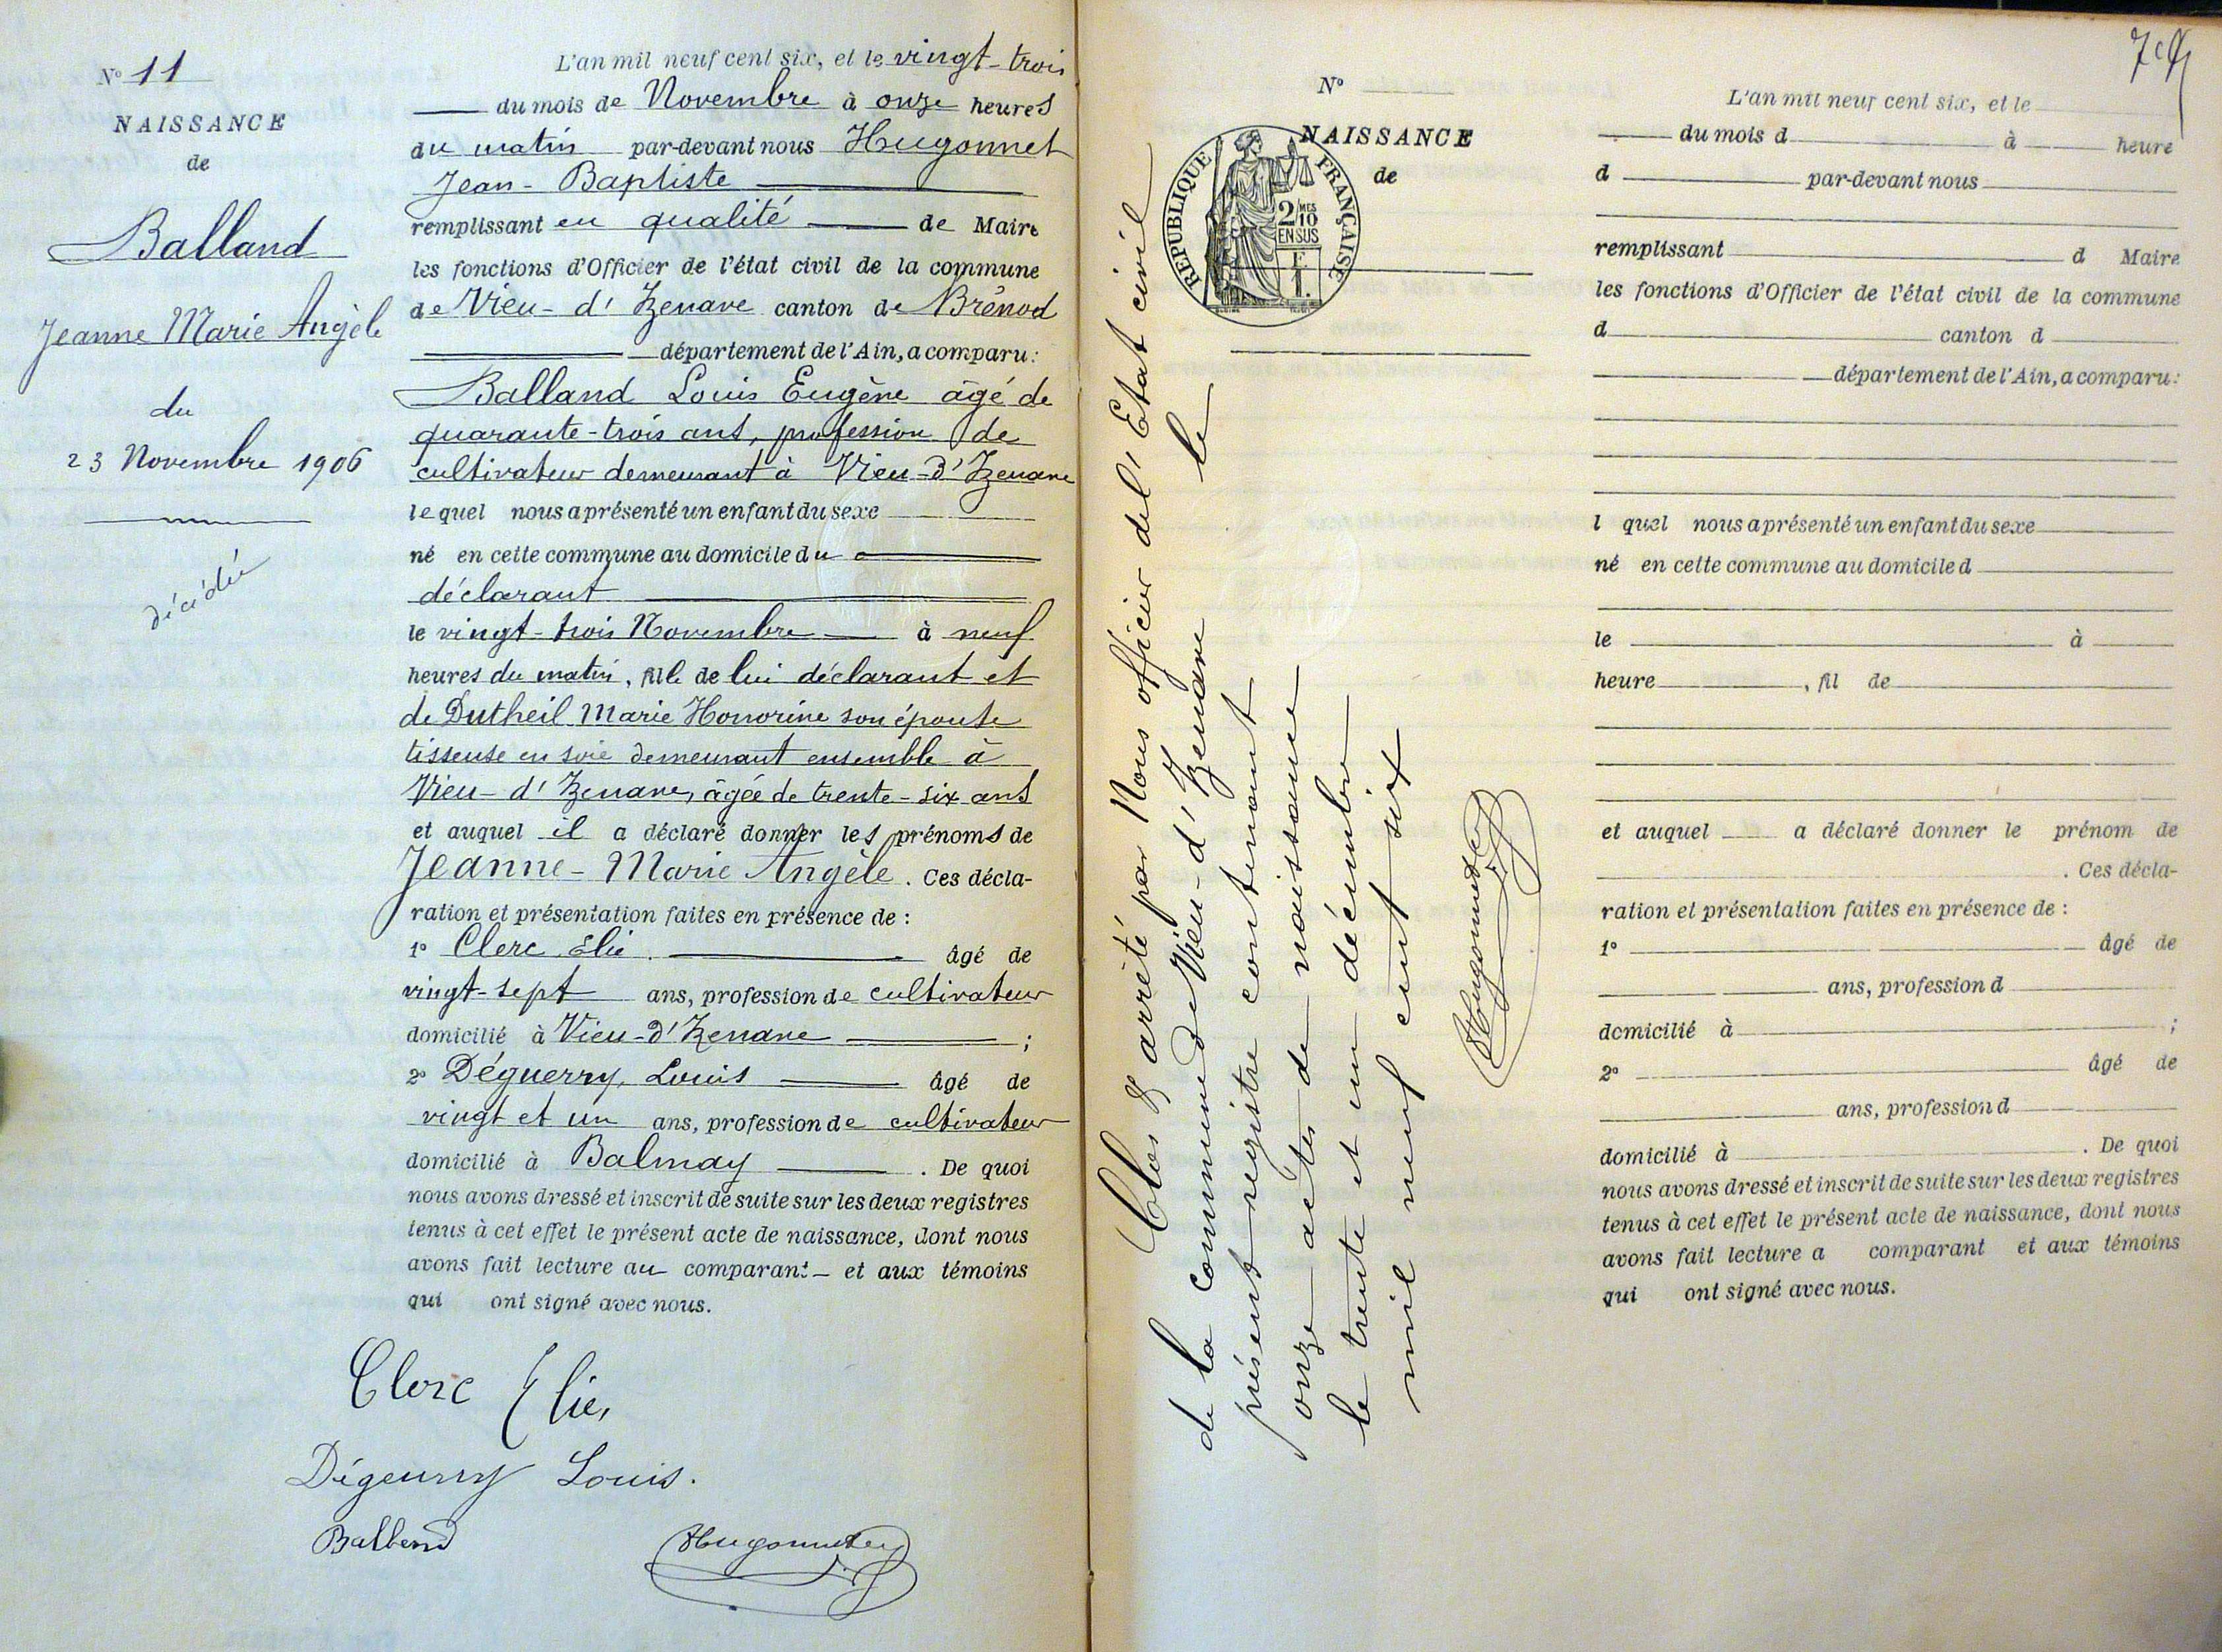 N° 11
NAISSANCE
de
Balland
Jeanne Marie Angèle
du
23 Novembre 1906
décédée
L'an mil neuf cent six, et le vingt-trois
du mois de Novembre à onze heures
du matin par-devant nous Hugonnet
Jean-Baptiste
remplissant en qualité de Maire
les fonctions d'Officier de l'état civil de la commune
de Vieu-d'Izenave canton de Brénod
département de l'Ain, a comparu:
Balland Louis Eugène âgé de
quarante-trois ans, profession de
cultivateur demeurant à Vieu-d'Izenave
lequel nous a présenté un enfant du sexe
né en cette commune au domicile du
déclarant
le vingt-trois Novembre à neuf
heures du matin, fille de lui déclarant et
de Dutheil Marie Honorine son épouse
tisseuse en soie demeurant ensemble à
Vieu-d'Izenave, âgée de trente-six ans
et auquel il a déclaré donner les prénoms de
Jeanne-Marie Angèle. Ces décla-
ration et présentation faites en présence de :
1° Clerc Elie. âgé de
vingt-sept ans, profession de cultivateur
domicilié à Vieu-d'Izenave ;
2° Déguerry, Louis âgé de
vingt et un ans, profession de cultivateur
domicilié à Balmay . De quoi
nous avons dressé et inscrit de suite sur les deux registres
tenus à cet effet le présent acte de naissance, dont nous
avons fait lecture au comparant et aux témoins
qui ont signé avec nous.
Clerc Elie,
Dégeurry Louis.
Balland
Hugonnet
Clos & arrêté par Nous officier de l'Etat civil
de la commune de Vieu-d'Izenave le
présent registre contenant
onze actes de naissance
le trente et un décembre
mil neuf cent six
Hugonnet
N°
NAISSANCE
de
REPUBLIQUE FRANÇAISE
2/MES
10
EN SUS
F.
1.
L'an mil neuf cent six, et le
du mois d à heure
d par-devant nous
remplissant d Maire
les fonctions d'Officier de l'état civil de la commune
d canton d
département de l'Ain, a comparu:
l quel nous a présenté un enfant du sexe
né en cette commune au domicile d
le à
heure , fil de
et auquel a déclaré donner le prénom de
. Ces décla-
ration et présentation faites en présence de :
1° âgé de
ans, profession d
domicilié à ;
2° âgé de
ans, profession d
domicilié à . De quoi
nous avons dressé et inscrit de suite sur les deux registres
tenus à cet effet le présent acte de naissance, dont nous
avons fait lecture a comparant et aux témoins
qui ont signé avec nous.